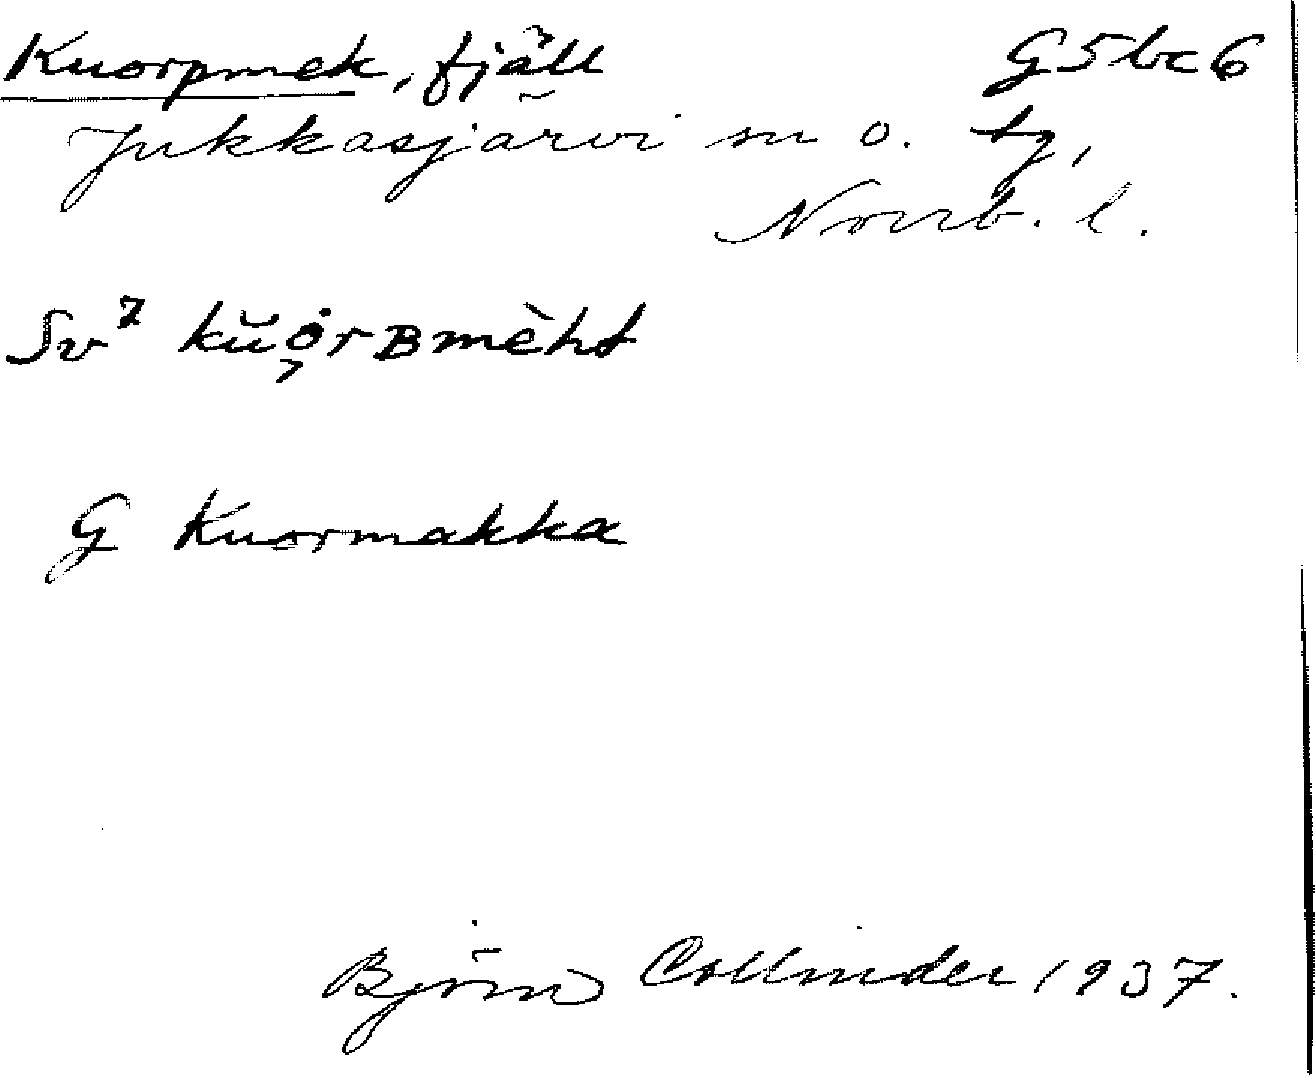 Kuorpmek, fjäll G5bc6
Jukkasjärvi sn o. tg,
Norrb. l.
Sv⁷ kŭȯ̜rʙmèht
G Kuormakka
Björn Collinder 1937.